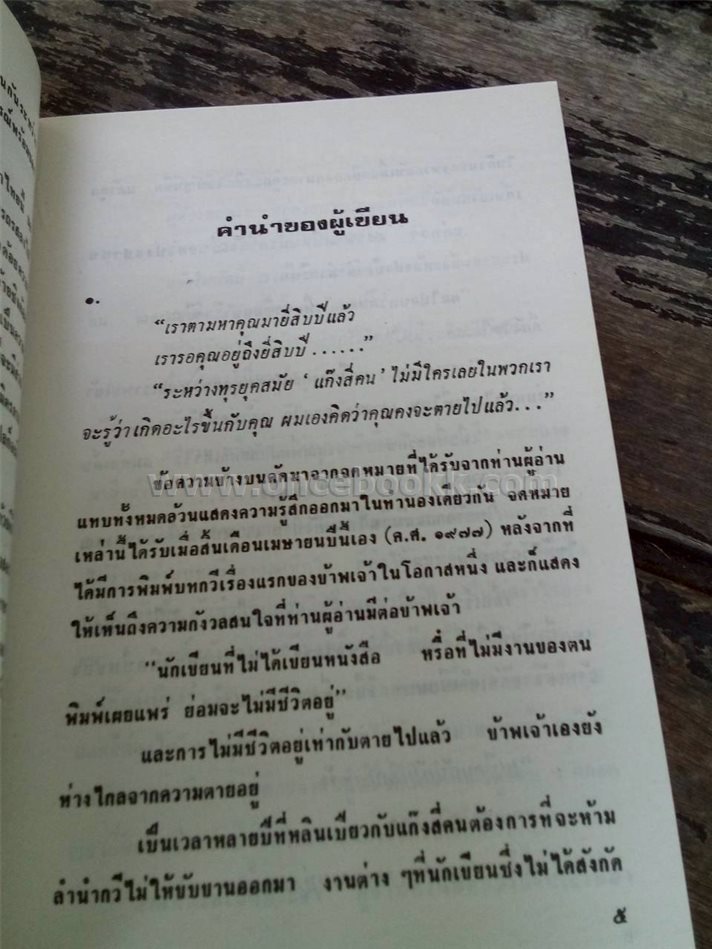 คำนำของผู้เขียน
๑.
“เราตามหาคุณมายี่สิบปีแล้ว
เรารอคุณอยู่ถึงยี่สิบปี ......”
“ระหว่างทุรยุคสมัย ‘ แก๊งสี่คน’ ไม่มีใครเลยในพวกเรา
จะรู้ว่าเกิดอะไรขึ้นกับคุณ ผมเองคิดว่าคุณคงจะตายไปแล้ว...”
ข้อความข้างบนคัดมาจากจดหมายที่ได้รับจากท่านผู้อ่าน
www.oncebookk.com
แทบทั้งหมดล้วนแสดงความรู้สึกออกมาในทำนองเดียวกัน จดหมาย
เหล่านี้ได้รับเมื่อสิ้นเดือนเมษายนปีนี้เอง (ค.ศ. ๑๙๗๗) หลังจากที่
ได้มีการพิมพ์บทกวีเรื่องแรกของข้าพเจ้าในโอกาสหนึ่ง และก็แสดง
ให้เห็นถึงความกังวลสนใจที่ท่านผู้อ่านมีต่อข้าพเจ้า
“นักเขียนที่ไม่ได้เขียนหนังสือ หรือที่ไม่มีงานของตน
พิมพ์เผยแพร่ ย่อมจะไม่มีชีวิตอยู่”
และการไม่มีชีวิตอยู่เท่ากับตายไปแล้ว ข้าพเจ้าเองยัง
ห่างไกลจากความตายอยู่
เป็นเวลาหลายปีที่หลินเปียวกับแก๊งสี่คนต้องการที่จะห้าม
ลำนำกวีไม่ให้ขับขานออกมา งานต่าง ๆที่นักเขียนซึ่งไม่ได้สังกัด
๕